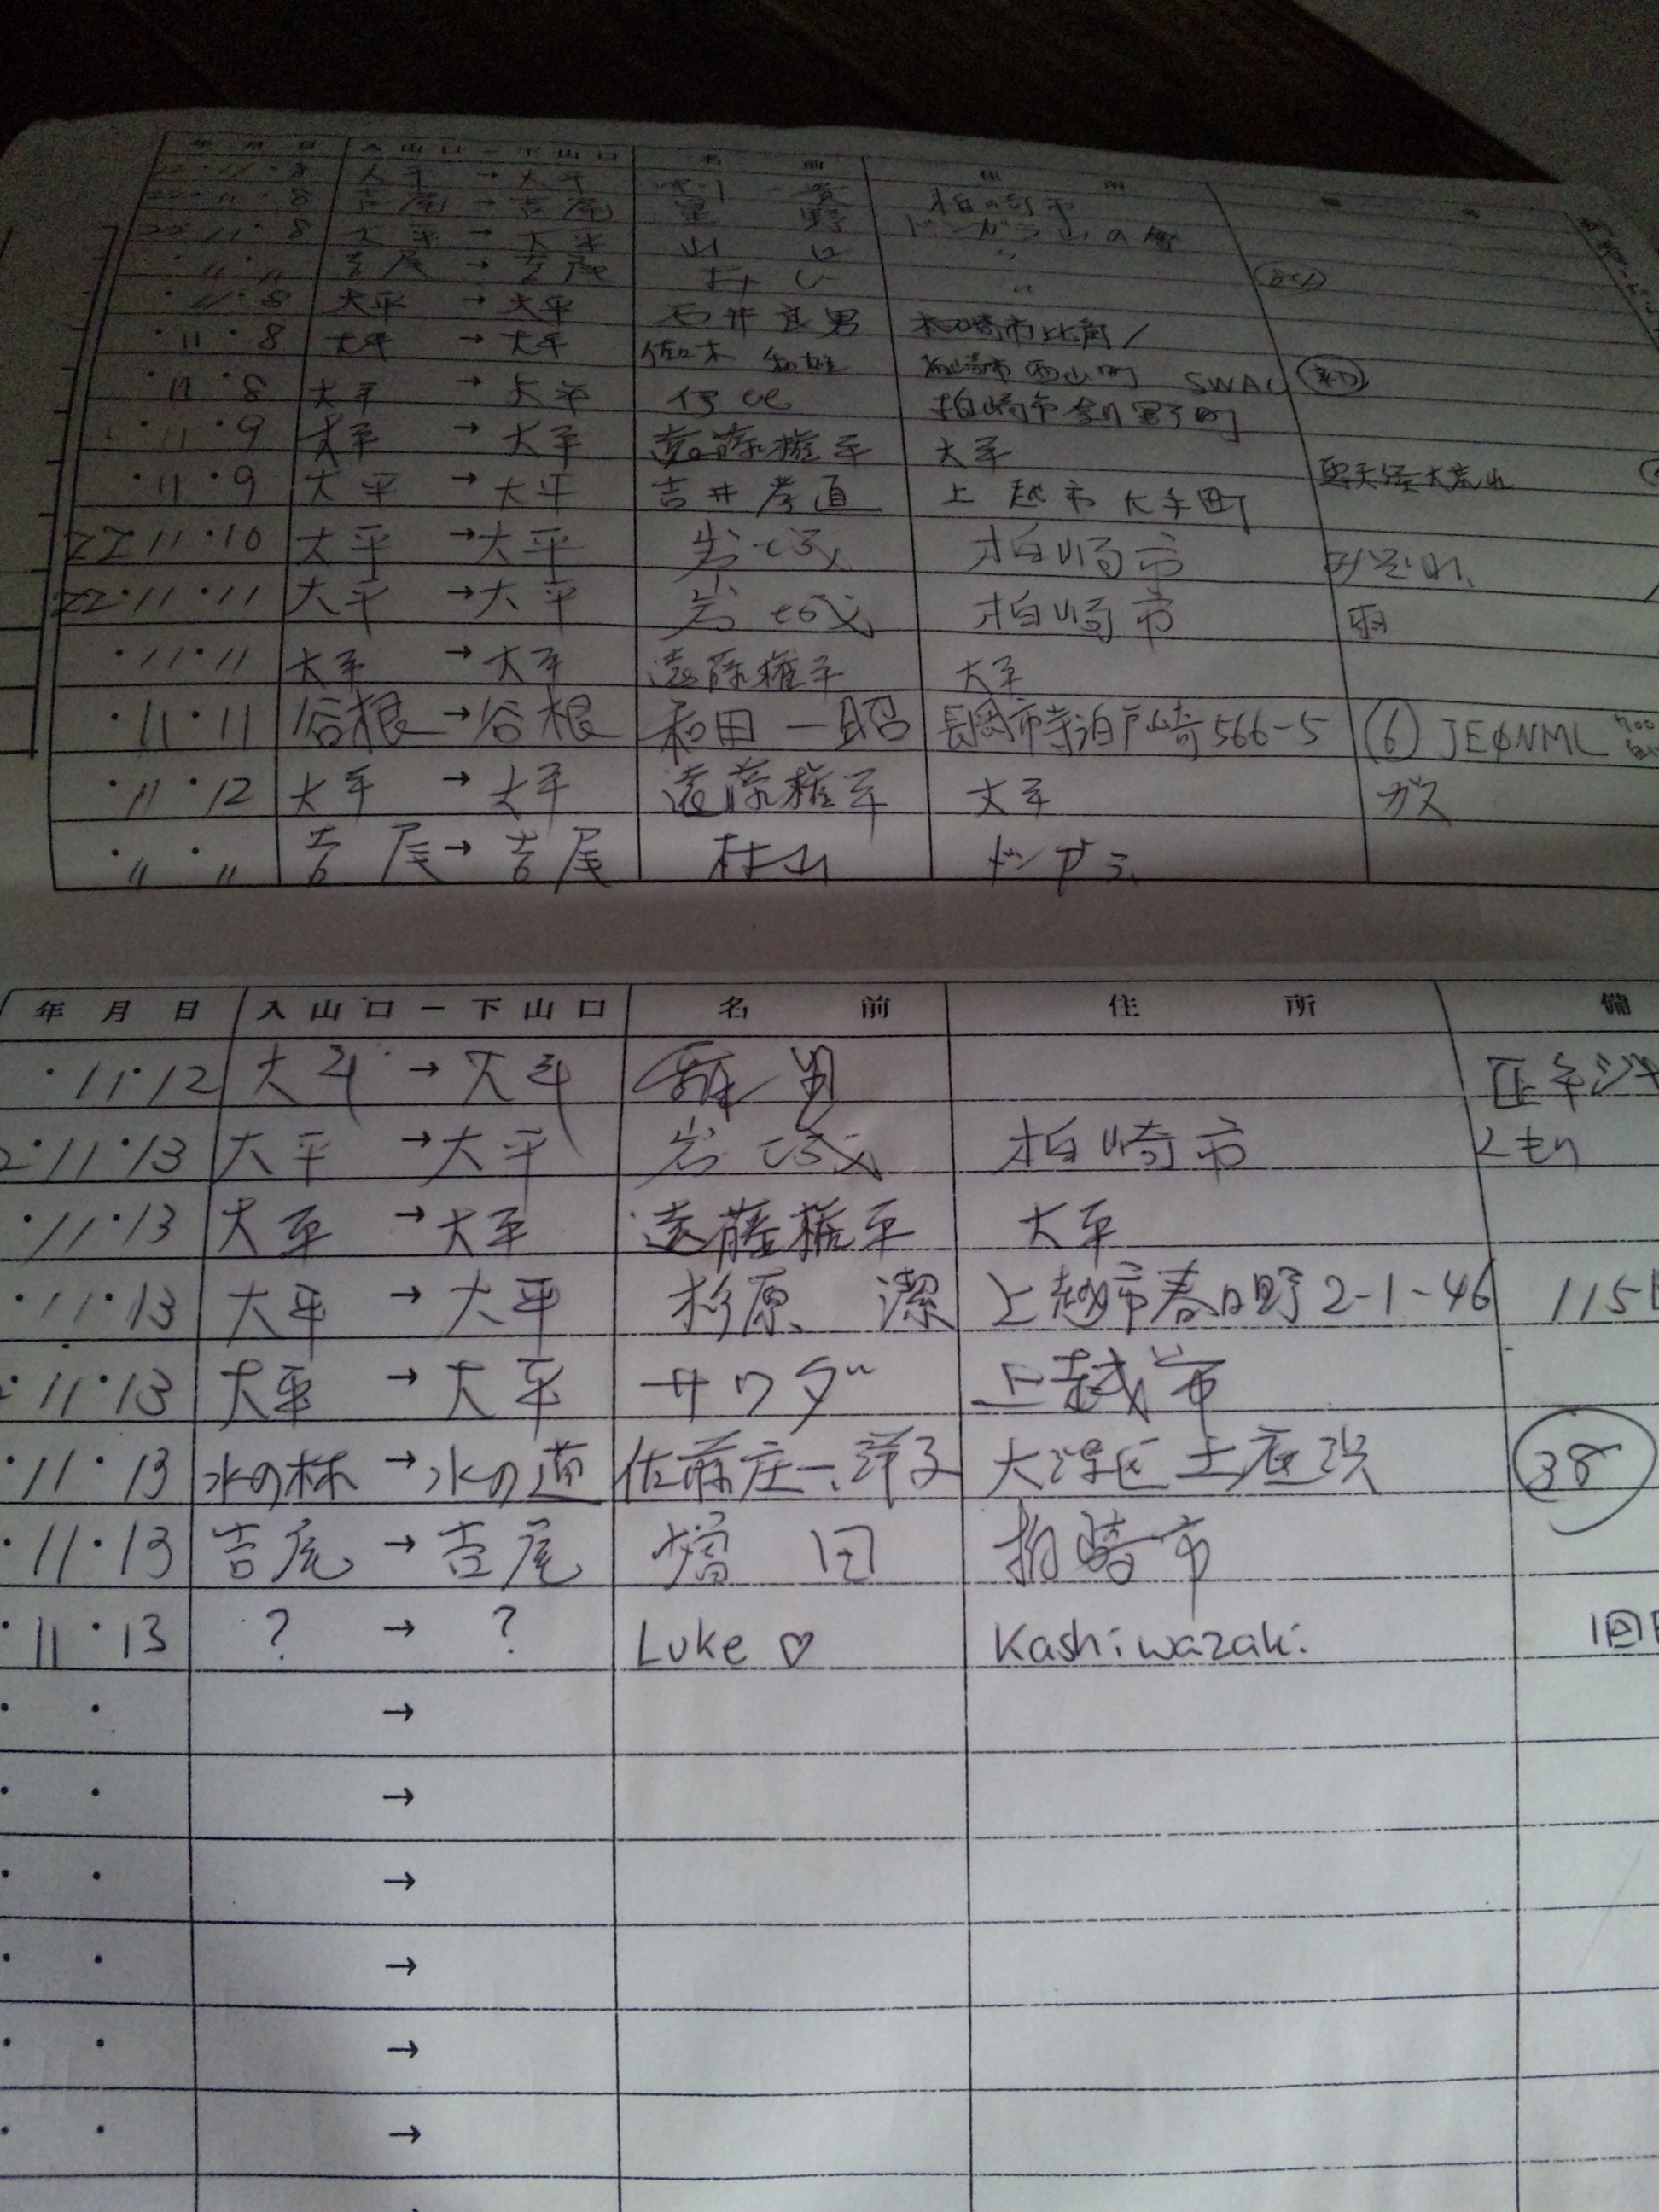 年 月 日 入山口ー下山口 名 前 住 所
22・11・8 大平 → 大平 柏崎市
22・11・8 吉尾 → 吉尾 ドンガラ山の
22・11・8 大平 → 大平 山口 〃
・〃・〃 吉尾 → 吉尾 〃
・11・8 大平 → 大平 石井良男 柏崎市比角
・11・8 大平 → 大平 佐々木 柏崎市西山町 SWAC
・11・8 大平 → 大平 柏崎市
・11・9 大平 → 大平 遠藤権平 大平
・11・9 大平 → 大平 吉井孝直 上越市大手町
22・11・10 大平 → 大平 岩城 柏崎市 みぞれ、
22・11・11 大平 → 大平 岩城 柏崎市 雨
・11・11 大平 → 大平 遠藤権平 大平
・11・11 谷根 → 谷根 和田一昭 長岡市寺泊戸崎566-5 ⑥ JEØNML
・11・12 大平 → 大平 遠藤権平 大平 ガス
・〃・〃 吉尾 → 吉尾 村山 ドンガラ
年 月 日 入山口ー下山口 名 前 住 所 備
・11・12 大平 → 大平
2・11・13 大平 → 大平 岩城 柏崎市 くもり
・11・13 大平 → 大平 遠藤権平 大平
・11・13 大平 → 大平 杉原 潔 上越市春日野2-1-46 115
・11・13 大平 → 大平 サワダ 上越市
・11・13 水の林 → 水の道 佐藤庄一、洋子 大潟区土底浜 38
・11・13 吉尾 → 吉尾 増田 柏崎市
・11・13 ? → ? Luke ♡ Kashiwazaki 1回
・ ・ →
・ ・ →
・ ・ →
・ ・ →
・ ・ →
・ ・ →